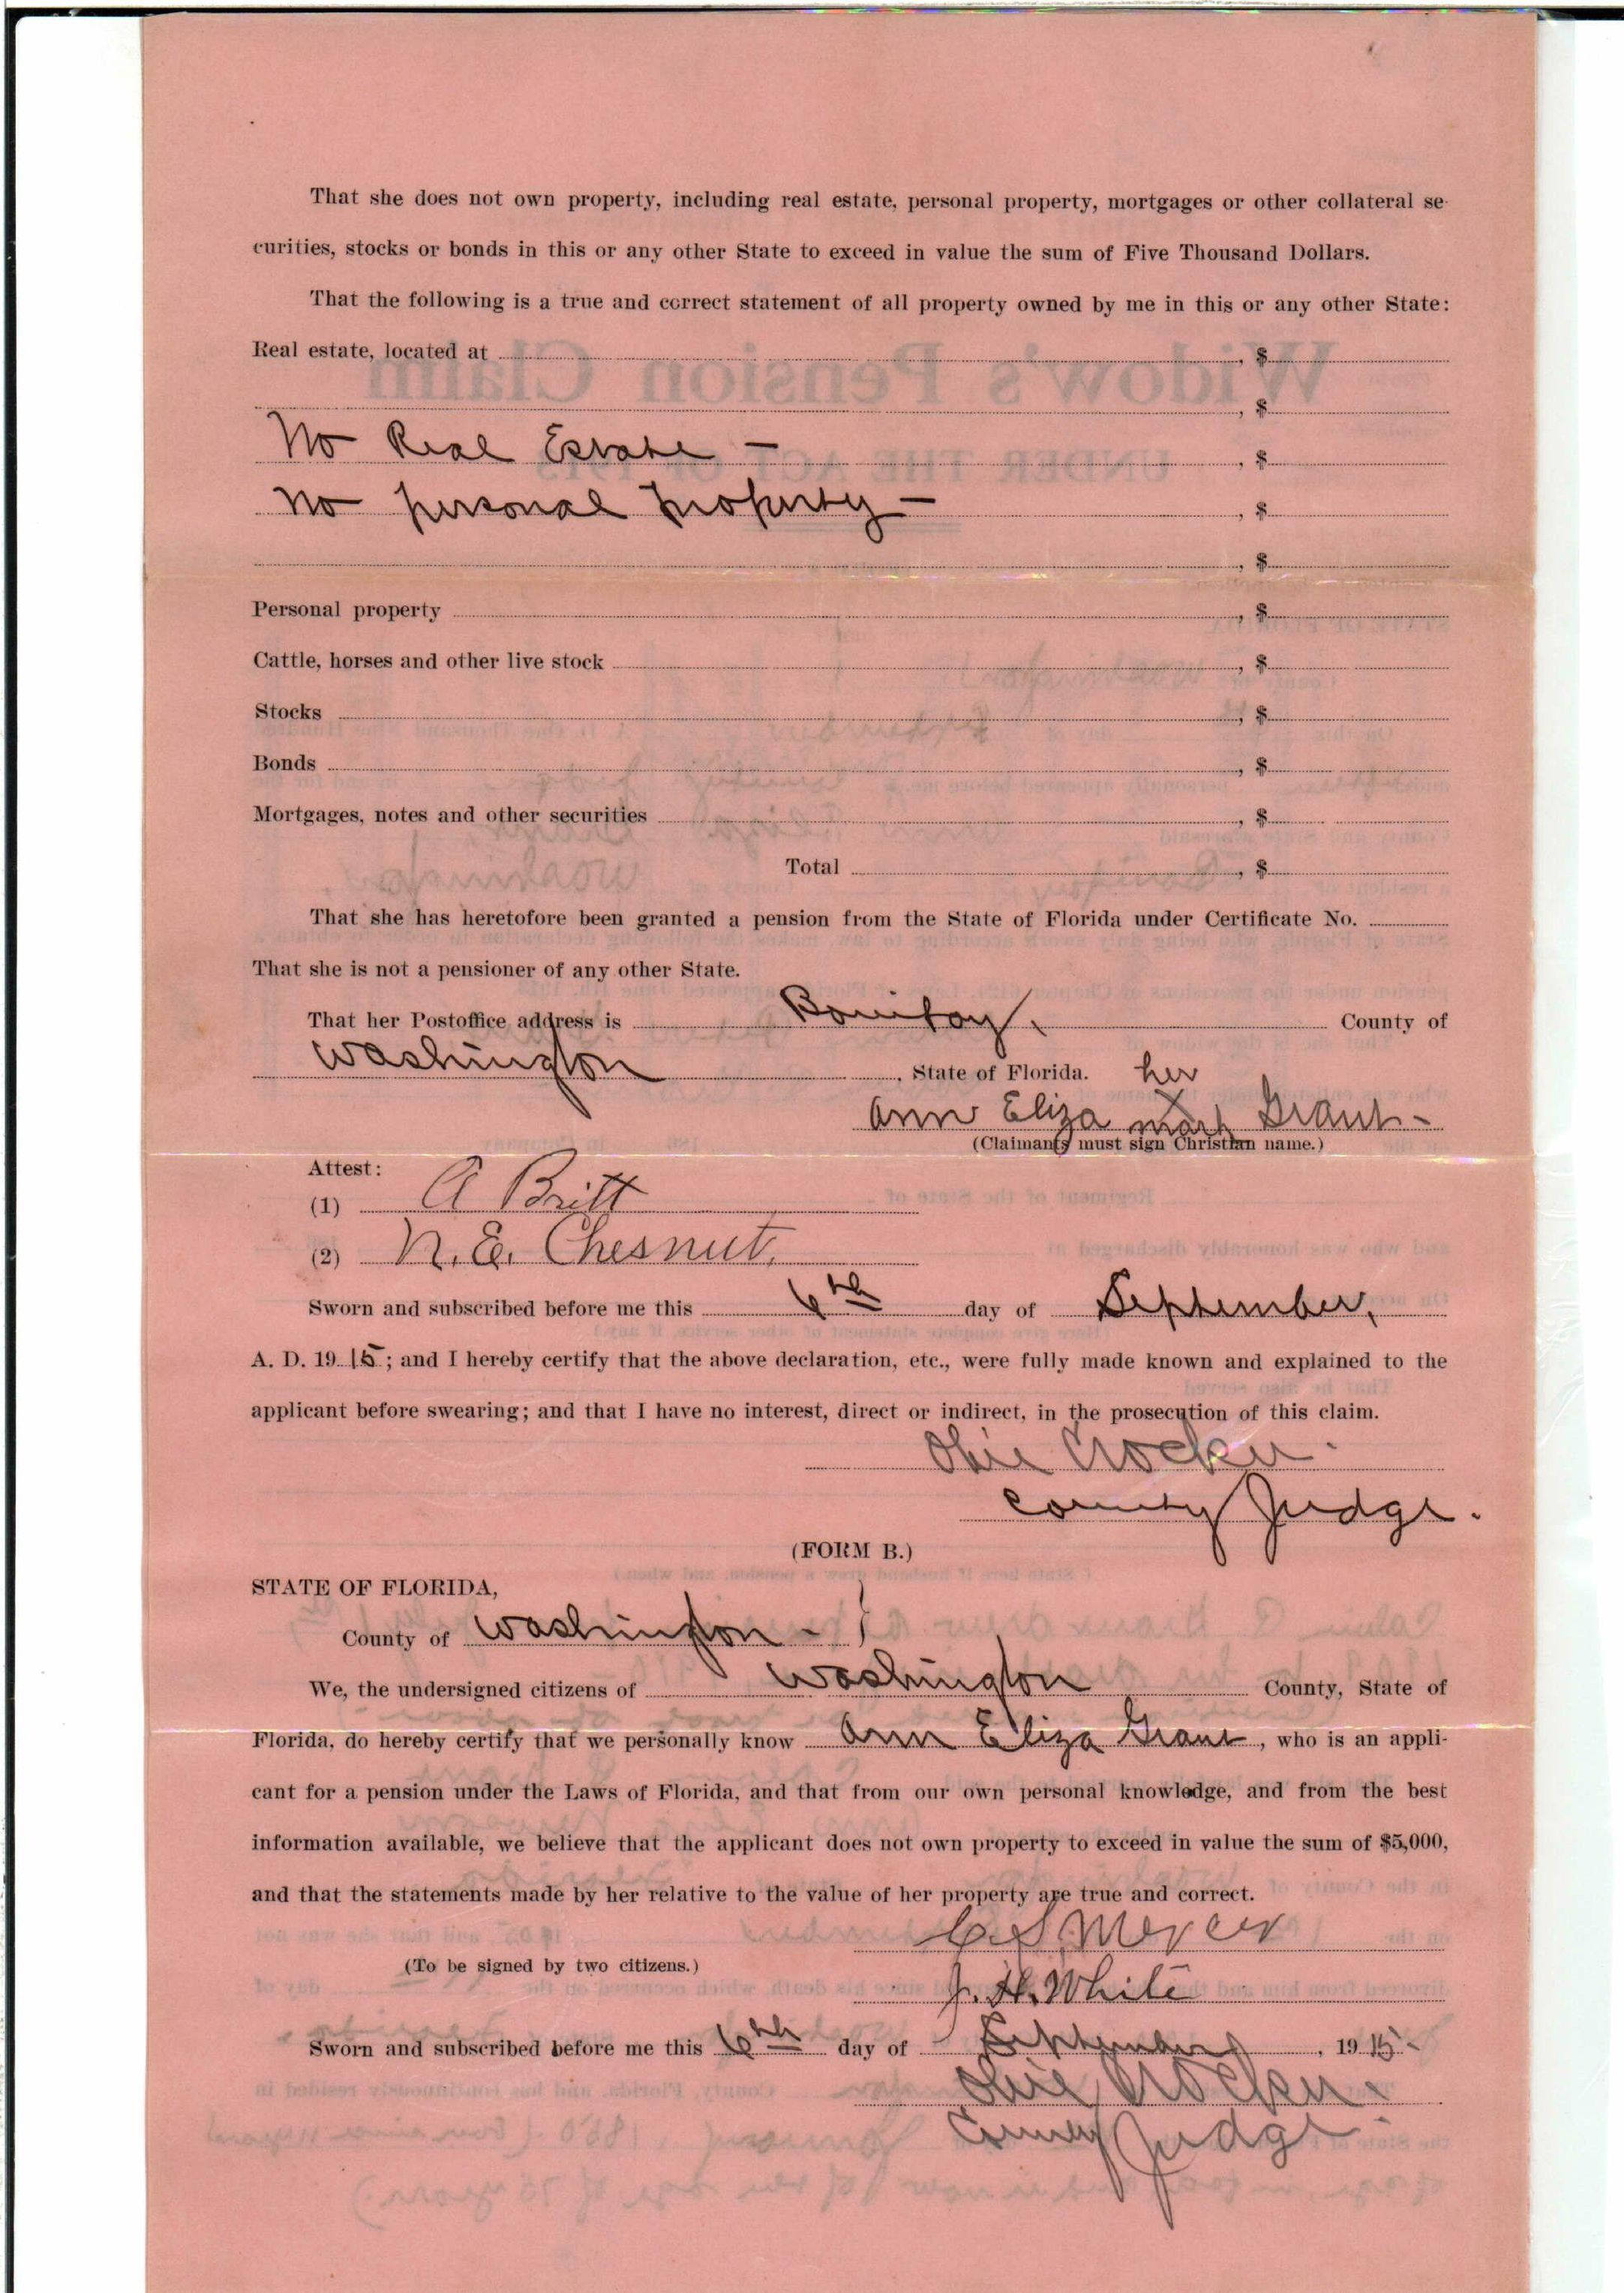 That she does not own property, including real estate, personal property, mortgages or other collateral se-
curities, stocks or bonds in this or any other State to exceed in value the sum of Five Thousand Dollars.
That the following is a true and correct statement of all property owned by me in this or any other State:
Real estate, located at , $
, $
No Real Estate – , $
No personal property – , $
, $
Personal property , $
Cattle, horses and other live stock , $
Stocks , $
Bonds , $
Mortgages, notes and other securities , $
Total , $
That she has heretofore been granted a pension from the State of Florida under Certificate No.
That she is not a pensioner of any other State.
That her Postoffice address is Bonifay, County of
Washington , State of Florida. her
Ann Eliza X mark Grant –
(Claimants must sign Christian name.)
Attest:
(1) A Britt
(2) N. E. Chesnut.
Sworn and subscribed before me this 6th day of September,
A. D. 1915; and I hereby certify that the above declaration, etc., were fully made known and explained to the
applicant before swearing; and that I have no interest, direct or indirect, in the prosecution of this claim.
Obie Crocker.
County Judge.
(FORM B.)
STATE OF FLORIDA,
County of Washington – }
We, the undersigned citizens of Washington County, State of
Florida, do hereby certify that we personally know Ann Eliza Grant, who is an appli-
cant for a pension under the Laws of Florida, and that from our own personal knowledge, and from the best
information available, we believe that the applicant does not own property to exceed in value the sum of $5,000,
and that the statements made by her relative to the value of her property are true and correct.
C. S. Mercer
(To be signed by two citizens.)
J. H. White
Sworn and subscribed before me this 6th day of September, 1915–
Obie Crocker.
County Judge.